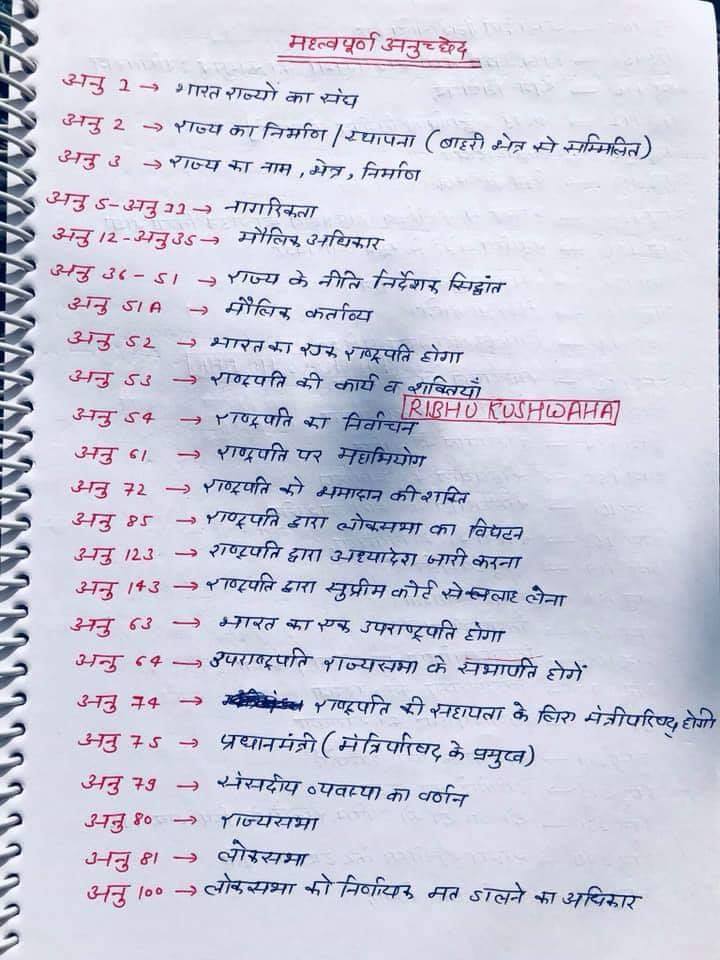 महत्वपूर्ण अनुच्छेद
अनु 1 → भारत राज्यो का संघ
अनु 2 → राज्य का निर्माण / स्थापना ( बाहरी क्षेत्र से सम्मिलित )
अनु 3 → राज्य का नाम, क्षेत्र, निर्माण
अनु 5-अनु 11 → नागरिकता
अनु 12-अनु 35 → मौलिक अधिकार
अनु 36 - 51 → राज्य के नीति निर्देशक सिद्धांत
अनु 51A → मौलिक कर्ताव्य
अनु 52 → भारत का एक राष्ट्रपति होगा
अनु 53 → राष्ट्रपति की कार्य व शक्तियाँ
RIBHU KUSHWAHA
अनु 54 → राष्ट्रपति का निर्वाचन
अनु 61 → राष्ट्रपति पर महाभियोग
अनु 72 → राष्ट्रपति को क्षमादान की शक्ति
अनु 85 → राष्ट्रपति द्वारा लोकसभा का विघटन
अनु 123 → राष्ट्रपति द्वारा अध्यादेश जारी करना
अनु 143 → राष्ट्रपति द्वारा सुप्रीम कोर्ट से सलाह लेना
अनु 63 → भारत का एक उपराष्ट्रपति होगा
अनु 64 → उपराष्ट्रपति राज्यसभा के सभापति होगें
अनु 74 → राष्ट्रपति की सहायता के लिए मंत्रीपरिषद् होगी
अनु 75 → प्रधानमंत्री ( मंत्रिपरिषद के प्रमुख )
अनु 79 → संसदीय व्यवस्था का वर्णन
अनु 80 → राज्यसभा
अनु 81 → लोकसभा
अनु 100 → लोकसभा को निर्णायक मत डालने का अधिकार